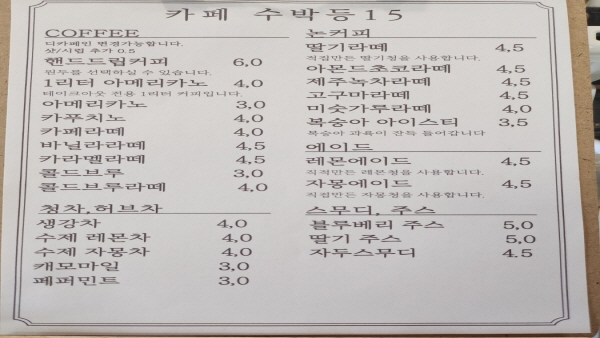 카페 수박등15
COFFEE
디카페인 변경가능합니다.
샷/시럽 추가 0.5
핸드드립커피 6,0
원두를 선택하실 수 있습니다.
1리터 아메리카노 4,0
테이크아웃 전용 1리터 커피입니다.
아메리카노 3,0
카푸치노 4,0
카페라떼 4,0
바닐라라떼 4,5
카라멜라떼 4,5
콜드브루 3,0
콜드브루라떼 4,0
청차,허브차
생강차 4,0
수제 레몬차 4,0
수제 자몽차 4,0
캐모마일 3,0
페퍼민트 3,0
논커피
딸기라떼 4,5
직접만든 딸기청을 사용합니다.
아몬드초코라떼 4,5
제주녹차라떼 4,0
고구마라떼 4,5
미숫가루라떼 4,0
복숭아 아이스티 3,5
복숭아 과육이 잔득 들어갑니다
에이드
레몬에이드 4,5
직접만든 레몬청을 사용합니다.
자몽에이드 4,5
직접만든 자몽청을 사용합니다.
스무디, 주스
블루베리 주스 5,0
딸기 주스 5,0
자두스무디 4.5